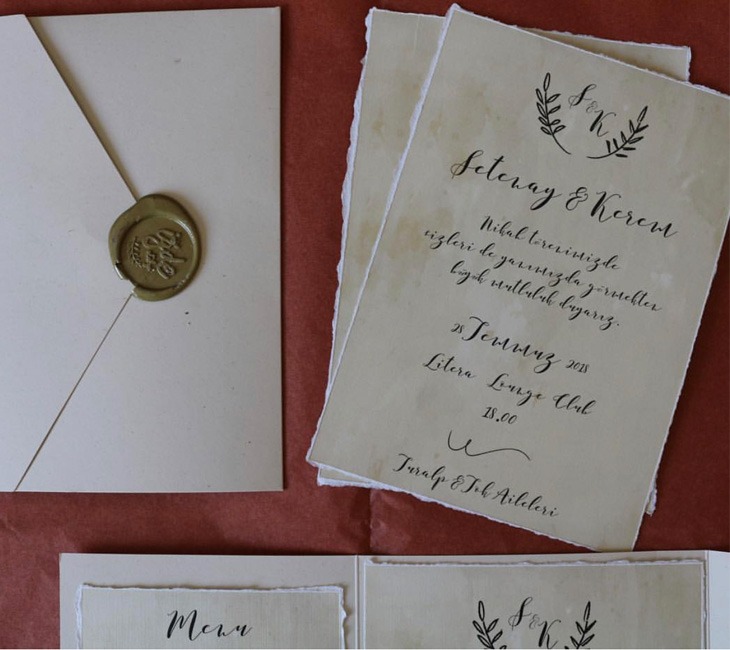 S & K
Setenay & Kerem
Nikah törenimizde
sizleri de yanımızda görmekten
büyük mutluluk duyarız.
28 Temmuz 2018
Litera Lounge Club
18.00
Turalp & Tok Aileleri
Menu
S & K